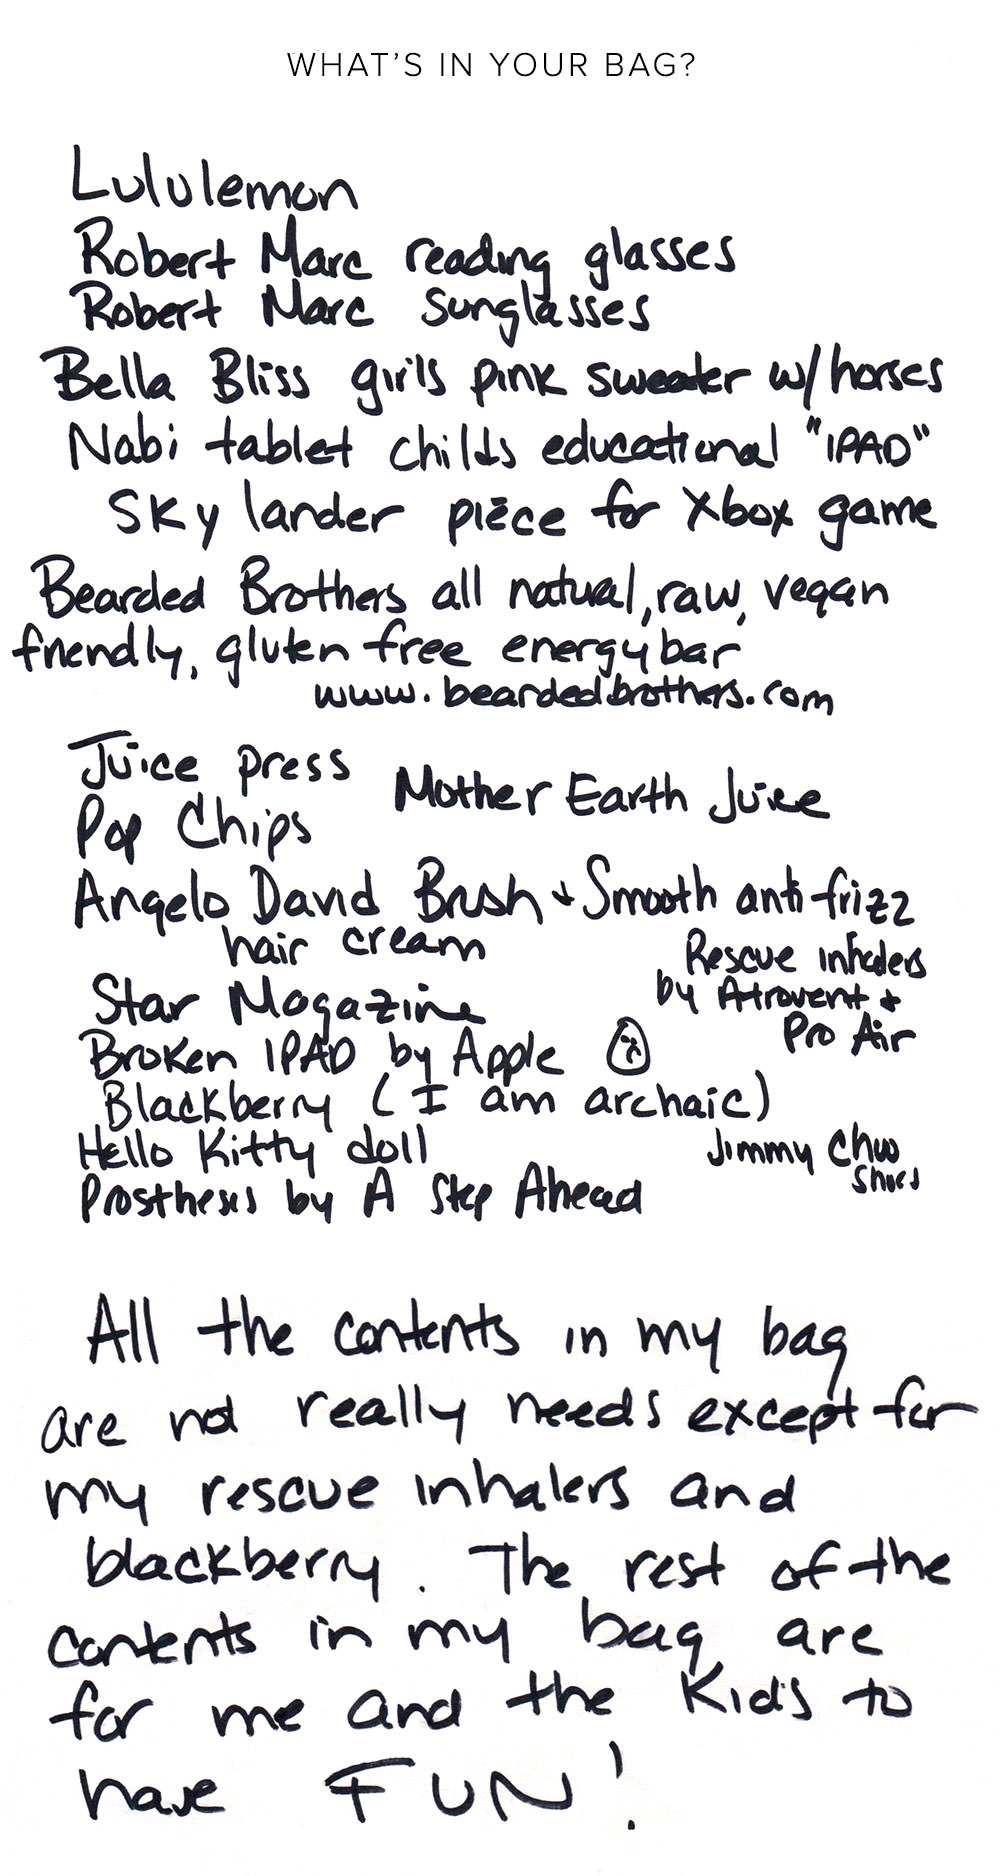 WHAT'S IN YOUR BAG?
Lululemon
Robert Marc reading glasses
Robert Marc sunglasses
Bella Bliss girls pink sweater w/horses
Nabi tablet childs educational "IPAD"
Sky lander piece for Xbox game
Bearded Brothers all natural, raw, vegan
friendly, gluten free energy bar
www.beardedbrothers.com
Juice press
Mother Earth Juice
Pop Chips
Angelo David Brush + Smooth anti-frizz
hair cream
Rescue inhalers
by Atrovent +
Pro Air
Star Magazine
Broken IPAD by Apple
Blackberry (I am archaic)
Hello Kitty doll
Jimmy Choo
shoes
Prosthesis by A Step Ahead
All the contents in my bag
are not really needs except for
my rescue inhalers and
blackberry. The rest of the
contents in my bag are
for me and the kids to
have FUN!